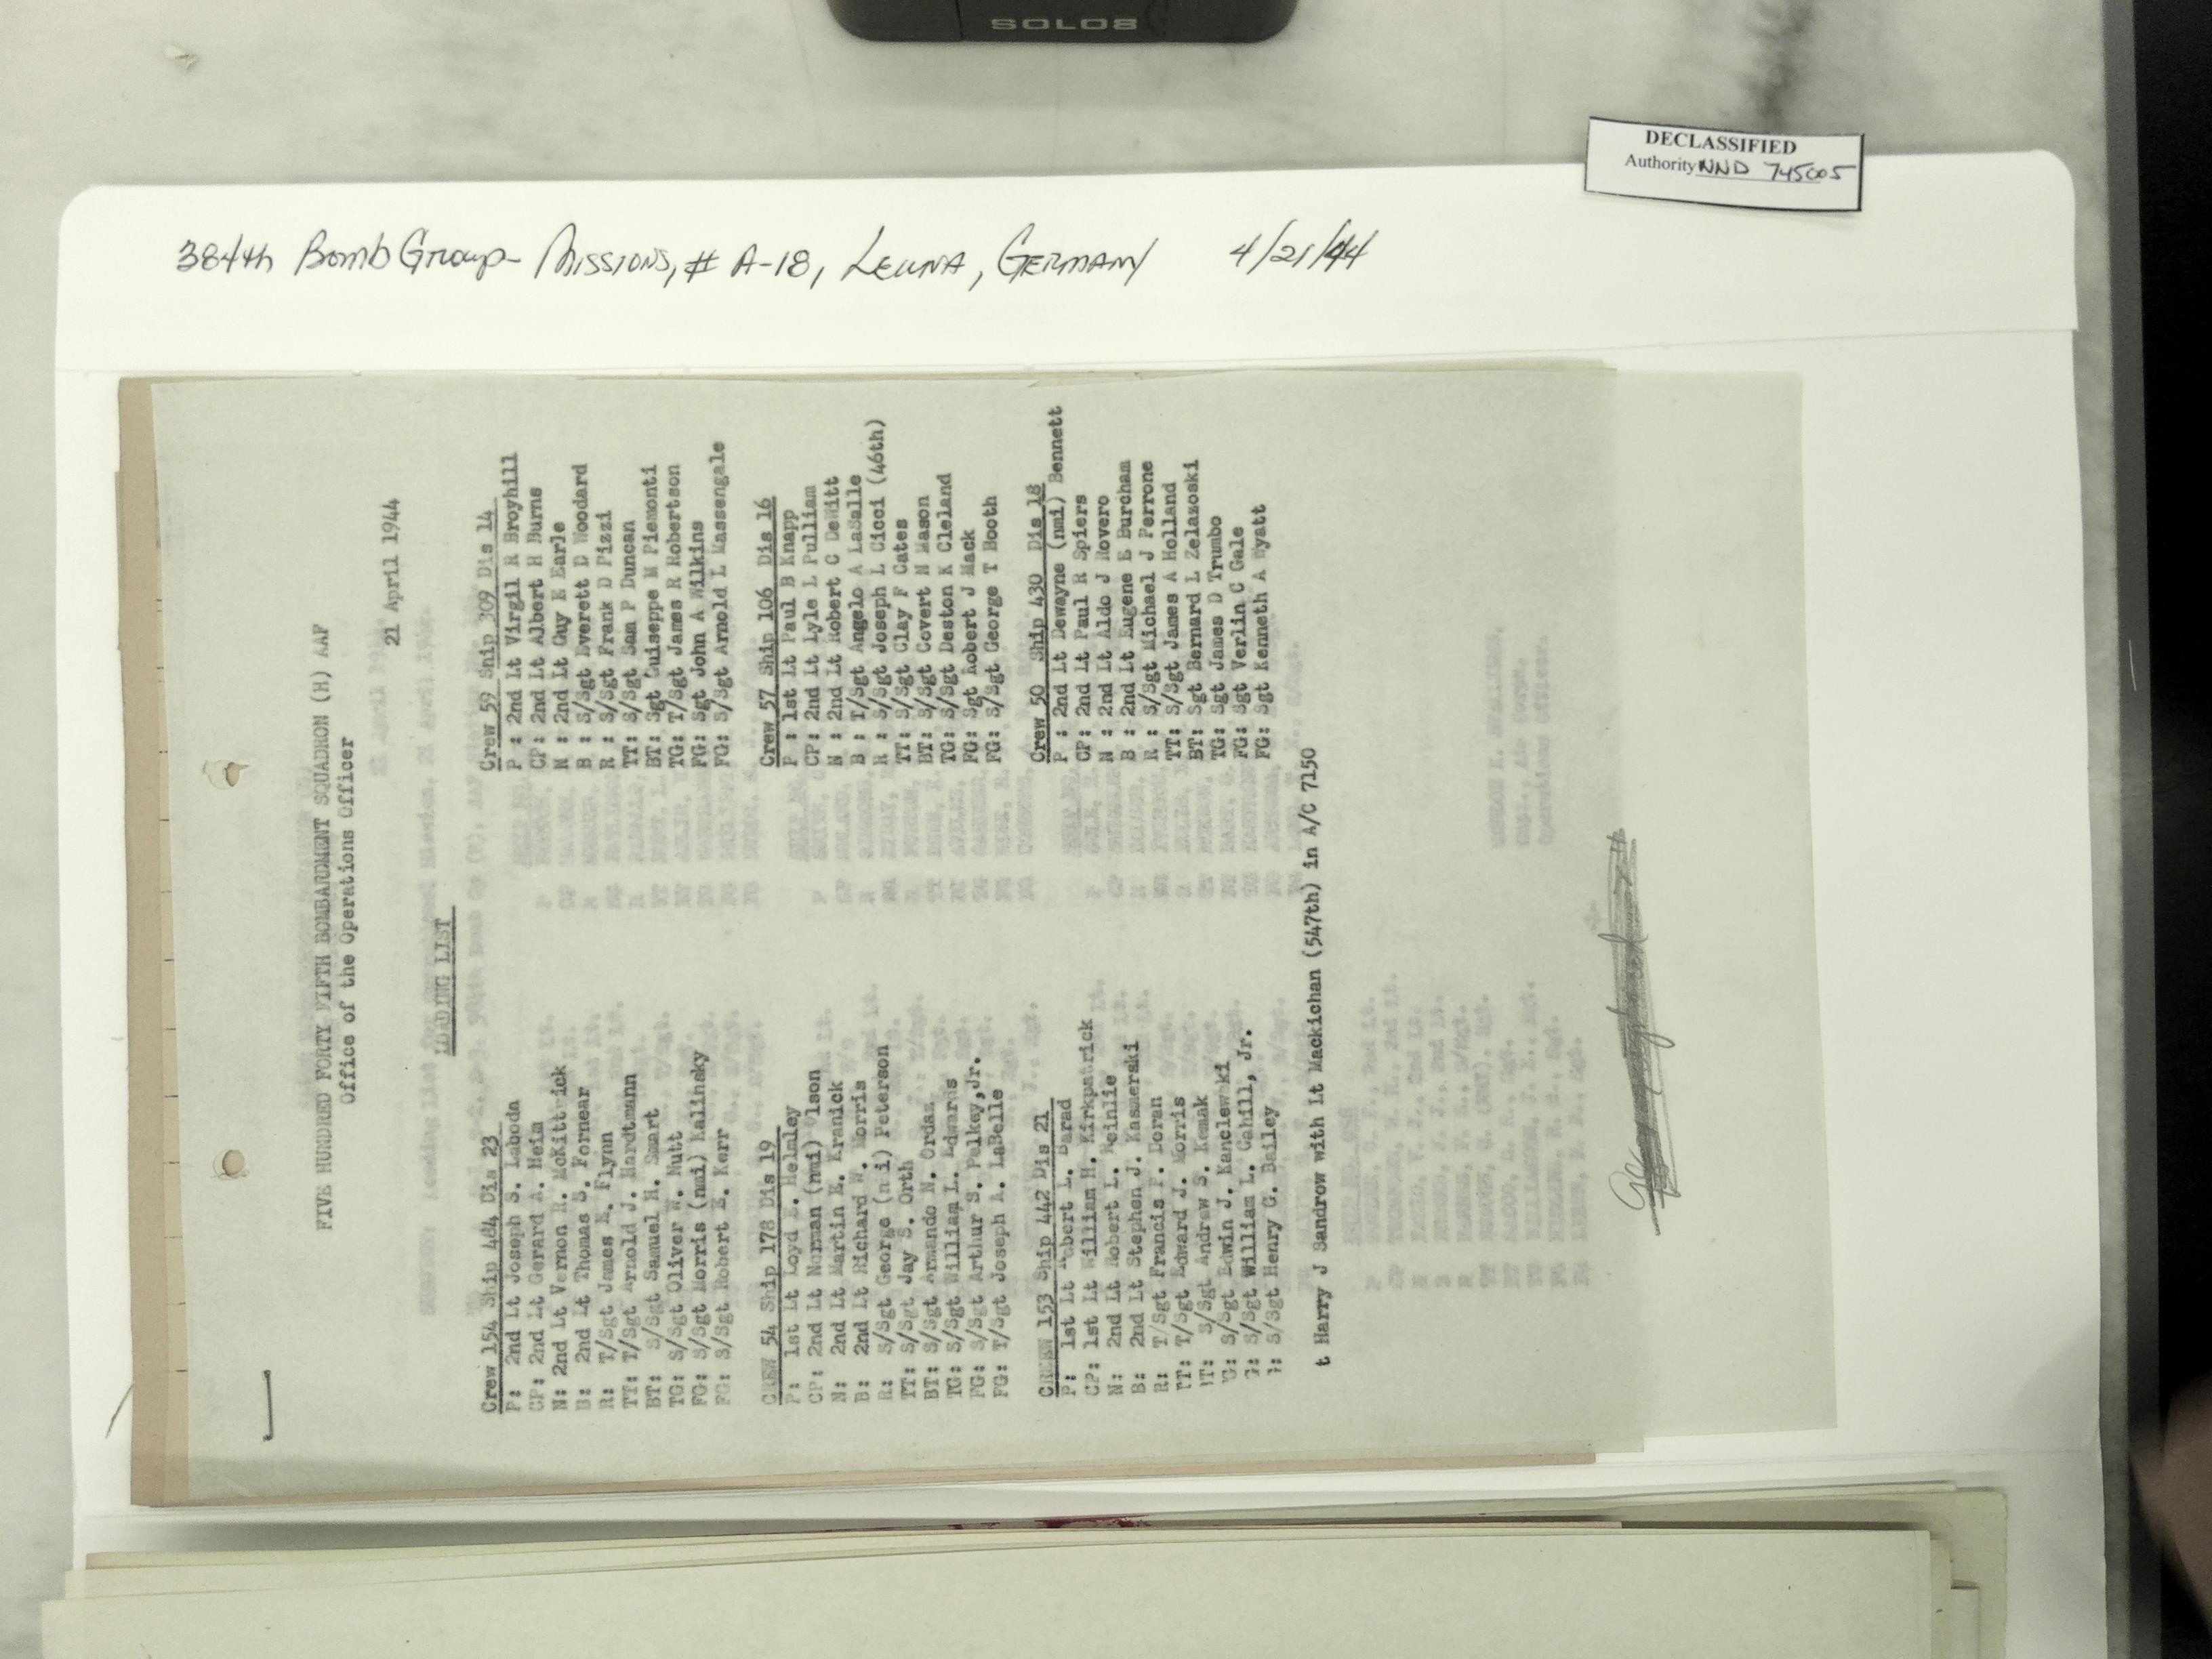 SOLO8
DECLASSIFIED
Authority NND 745005
384th Bomb Group- Missions, # A-18, Leuna, Germany 4/21/44
FIVE HUNDRED FORTY FIFTH BOMBARDMENT SQUADRON (H) AAF
Office of the Operations Officer
21 April 1944
LOADING LIST
Crew 154 Ship 484 Dis 23
P: 2nd Lt Joseph S. Laboda
CP: 2nd Lt Gerard A. Heim
N: 2nd Lt Vernon R. McKittrick
B: 2nd Lt Thomas B. Fornear
R: T/Sgt James E. Flynn
TT: T/Sgt Arnold J. Hardtmann
BT: S/Sgt Samuel H. Smart
TG: S/Sgt Oliver W. Nutt
FG: S/Sgt Morris (nmi) Kalinsky
FG: S/Sgt Robert E. Kerr
CREW 54 Ship 178 Dis 19
P: 1st Lt Loyd E. Helmley
CP: 2nd Lt Norman (nmi) Olson
N: 2nd Lt Martin E. Kranick
B: 2nd Lt Richard W. Morris
R: S/Sgt George (n i) Peterson
TT: S/Sgt Jay S. Orth
BT: S/Sgt Armando N. Ordaz
TG: S/Sgt William L. Edwards
FG: S/Sgt Arthur S. Pelkey,Jr.
FG: T/Sgt Joseph A. LaBelle
CREW 153 Ship 442 Dis 21
P: 1st Lt Robert L. Barad
CP: 1st Lt William H. Kirkpatrick
N: 2nd Lt Robert L. Reinlie
B: 2nd Lt Stephen J. Kasmerski
R: T/Sgt Francis F. Doran
TT: T/Sgt Edward J. Morris
BT: S/Sgt Andrew S. Remak
G: S/Sgt Edwin J. Kanclewski
G: S/Sgt William L. Cahill, Jr.
G: S/Sgt Henry G. Bailey
Crew 59 Ship 309 Dis 14
P : 2nd Lt Virgil R Broyhill
CP: 2nd Lt Albert H Burns
N : 2nd Lt Guy E Earle
B : S/Sgt Everett D Woodard
R : S/Sgt Frank D Pizzi
TT: S/Sgt Sam P Duncan
BT: Sgt Guiseppe M Piemonti
TG: T/Sgt James R Robertson
FG: Sgt John A Wilkins
FG: S/Sgt Arnold L Massengale
Crew 57 Ship 106 Dis 16
P : 1st Lt Paul B Knapp
CP: 2nd Lt Lyle L Pulliam
N : 2nd Lt Robert C DeWitt
B : T/Sgt Angelo A LaSalle
R : S/Sgt Joseph L Cicci (46th)
TT: S/Sgt Clay F Cates
BT: S/Sgt Covert N Mason
TG: S/Sgt Deston K Cleland
FG: Sgt Robert J Mack
FG: S/Sgt George T Booth
Crew 50 Ship 430 Dis 18
P : 2nd Lt Dewayne (nmi) Bennett
CP: 2nd Lt Paul R Spiers
N : 2nd Lt Aldo J Rovero
B : 2nd Lt Eugene E Burcham
R : S/Sgt Michael J Perrone
TT: S/Sgt James A Holland
BT: Sgt Bernard L Zelazoski
TG: Sgt James D Trumbo
FG: Sgt Verlin C Gale
FG: Sgt Kenneth A Wyatt
t Harry J Sandrow with Lt Mackichan (547th) in A/C 7150